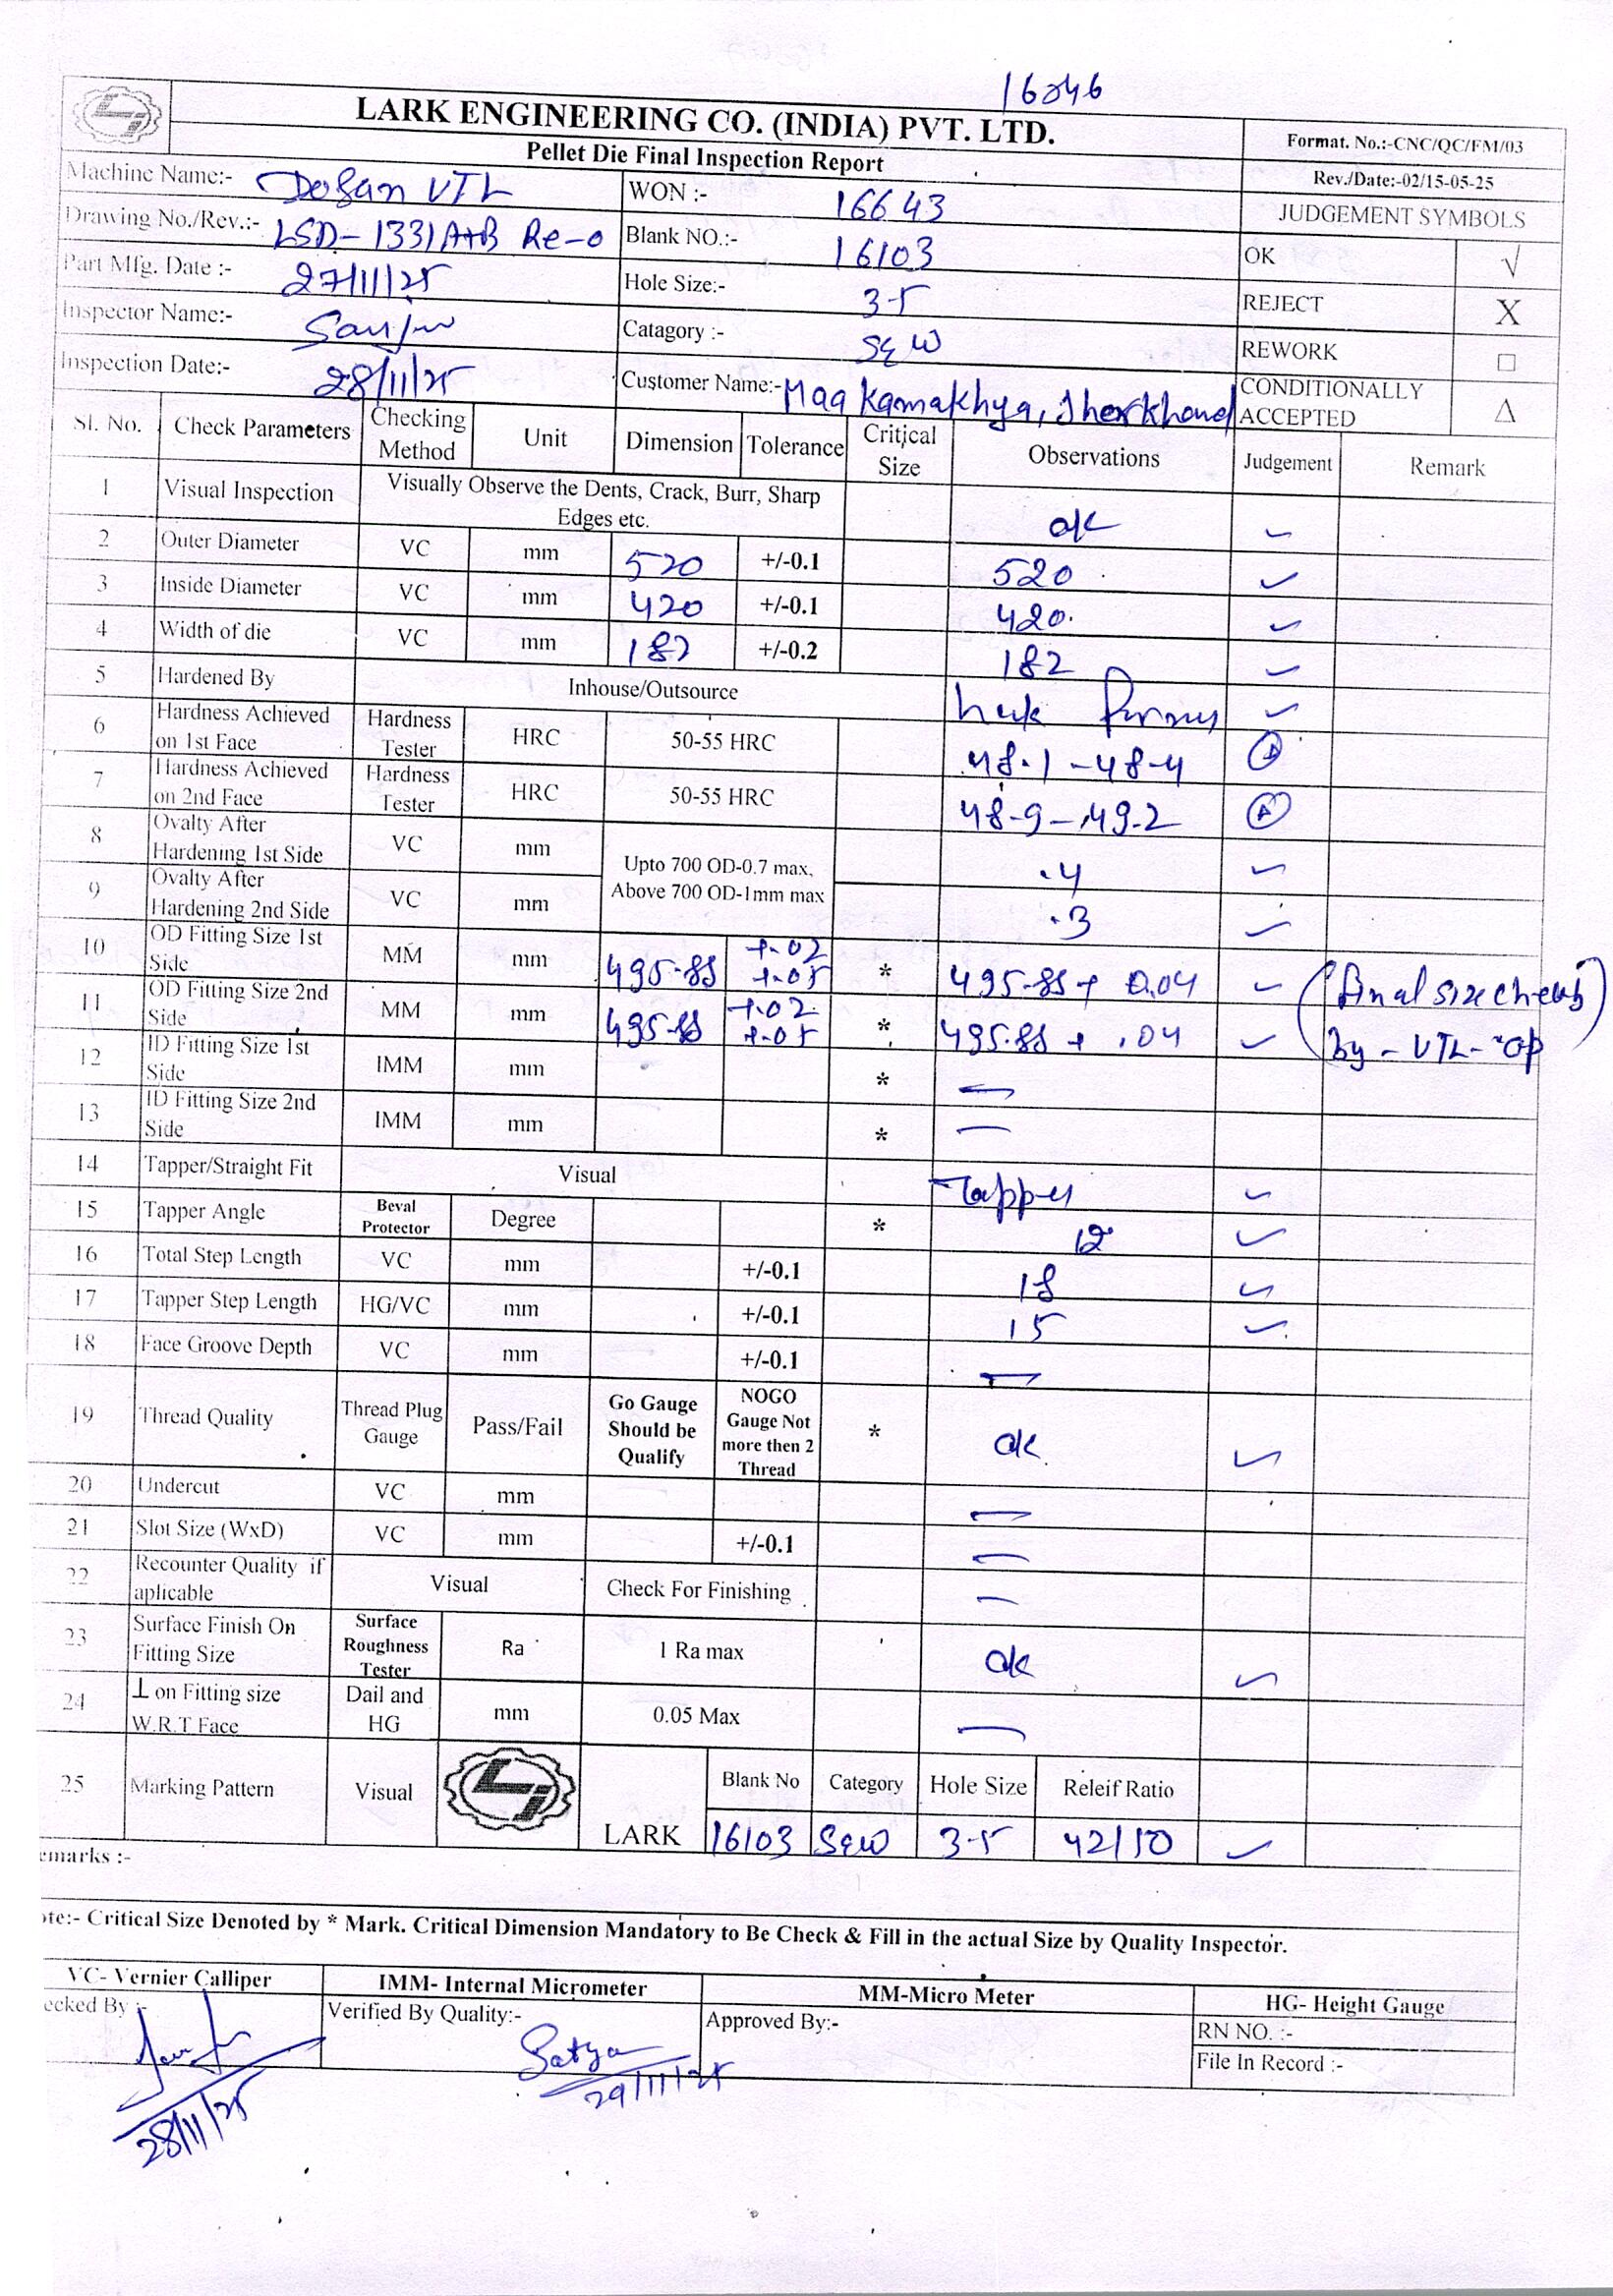 16046
LARK ENGINEERING CO. (INDIA) PVT. LTD.
Pellet Die Final Inspection Report
Format. No.:-CNC/QC/FM/03
Rev./Date:-02/15-05-25
Machine Name:- Dosan VTL
WON :- 16643
JUDGEMENT SYMBOLS
Drawing No./Rev.:- LSD-1331A+B Re-0
Blank NO.:- 16103
OK √
Part Mfg. Date :- 27/11/25
Hole Size:- 3.5
REJECT X
Inspector Name:- Sanju
Catagory :- S&W
REWORK □
Inspection Date:- 28/11/25
Customer Name:- Maa Kamakhya, Jharkhand
CONDITIONALLY ACCEPTED Δ
Sl. No. Check Parameters Checking Method Unit Dimension Tolerance Critical Size Observations Judgement Remark
1 Visual Inspection Visually Observe the Dents, Crack, Burr, Sharp Edges etc. ok ✓
2 Outer Diameter VC mm 520 +/-0.1 520 ✓
3 Inside Diameter VC mm 420 +/-0.1 420 ✓
4 Width of die VC mm 182 +/-0.2 182 ✓
5 Hardened By Inhouse/Outsource ✓
6 Hardness Achieved on 1st Face Hardness Tester HRC 50-55 HRC 48.1-48.4
7 Hardness Achieved on 2nd Face Hardness Tester HRC 50-55 HRC 48.9-49.2
8 Ovalty After Hardening 1st Side VC mm Upto 700 OD-0.7 max, Above 700 OD-1mm max .4 ✓
9 Ovalty After Hardening 2nd Side VC mm .3 ✓
10 OD Fitting Size 1st Side MM mm 495.85 +.02 +.05 * 495.85+ 0.04 ✓ (final size check
11 OD Fitting Size 2nd Side MM mm 495.85 +.02 +.05 * 495.85 + .04 ✓ by - VTL - op)
12 ID Fitting Size 1st Side IMM mm * —
13 ID Fitting Size 2nd Side IMM mm * —
14 Tapper/Straight Fit Visual Tapper ✓
15 Tapper Angle Beval Protector Degree * 12° ✓
16 Total Step Length VC mm +/-0.1 18 ✓
17 Tapper Step Length HG/VC mm +/-0.1 15 ✓
18 Face Groove Depth VC mm +/-0.1 —
19 Thread Quality Thread Plug Gauge Pass/Fail Go Gauge Should be Qualify NOGO Gauge Not more then 2 Thread * ok ✓
20 Undercut VC mm —
21 Slot Size (WxD) VC mm +/-0.1 —
22 Recounter Quality if aplicable Visual Check For Finishing —
23 Surface Finish On Fitting Size Surface Roughness Tester Ra 1 Ra max ok ✓
24 ⊥ on Fitting size W.R.T Face Dail and HG mm 0.05 Max —
25 Marking Pattern Visual LARK Blank No Category Hole Size Releif Ratio
16103 S&W 3.5 42/10 ✓
emarks :-
ote:- Critical Size Denoted by * Mark. Critical Dimension Mandatory to Be Check & Fill in the actual Size by Quality Inspector.
VC- Vernier Calliper IMM- Internal Micrometer MM-Micro Meter HG- Height Gauge
ecked By :- Verified By Quality:- Satya Approved By:- RN NO. :-
File In Record :-
28/11/25 29/11/25